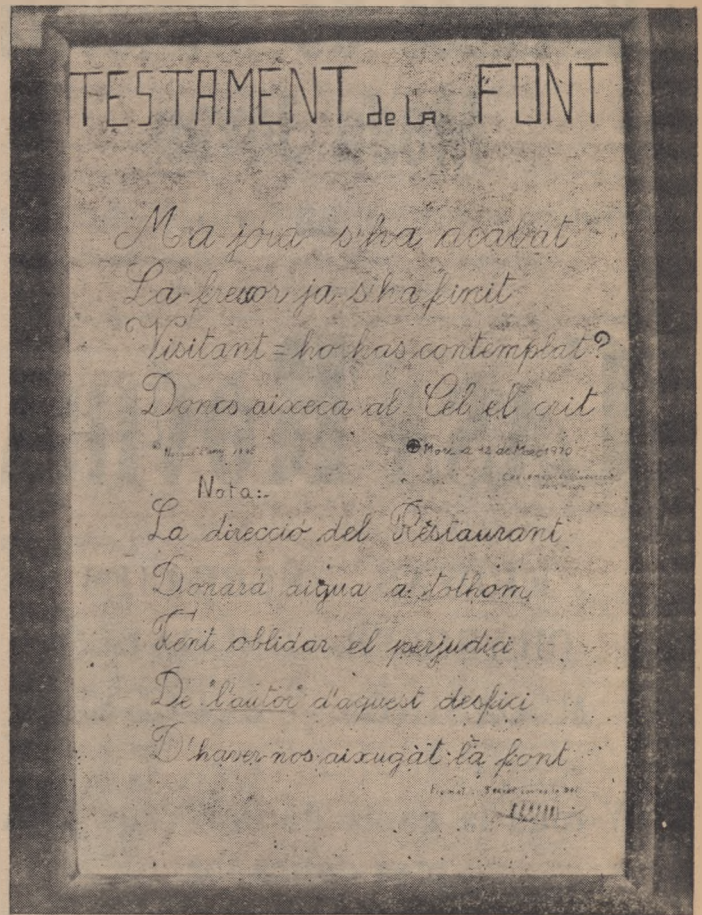 TESTAMENT de LA FONT
Ma joia s'ha acabat
La frescor ja s'ha finit
Visitant = ho has contemplat?
Doncs aixeca al Cel el crit
Morí a 12 de Març 1970
Nota:-
La direcció del Restaurant
Donarà aigua a tothom,
Fent oblidar el perjudici
De "l'autor" d'aquest desfici
D'haver-nos aixugàt la font